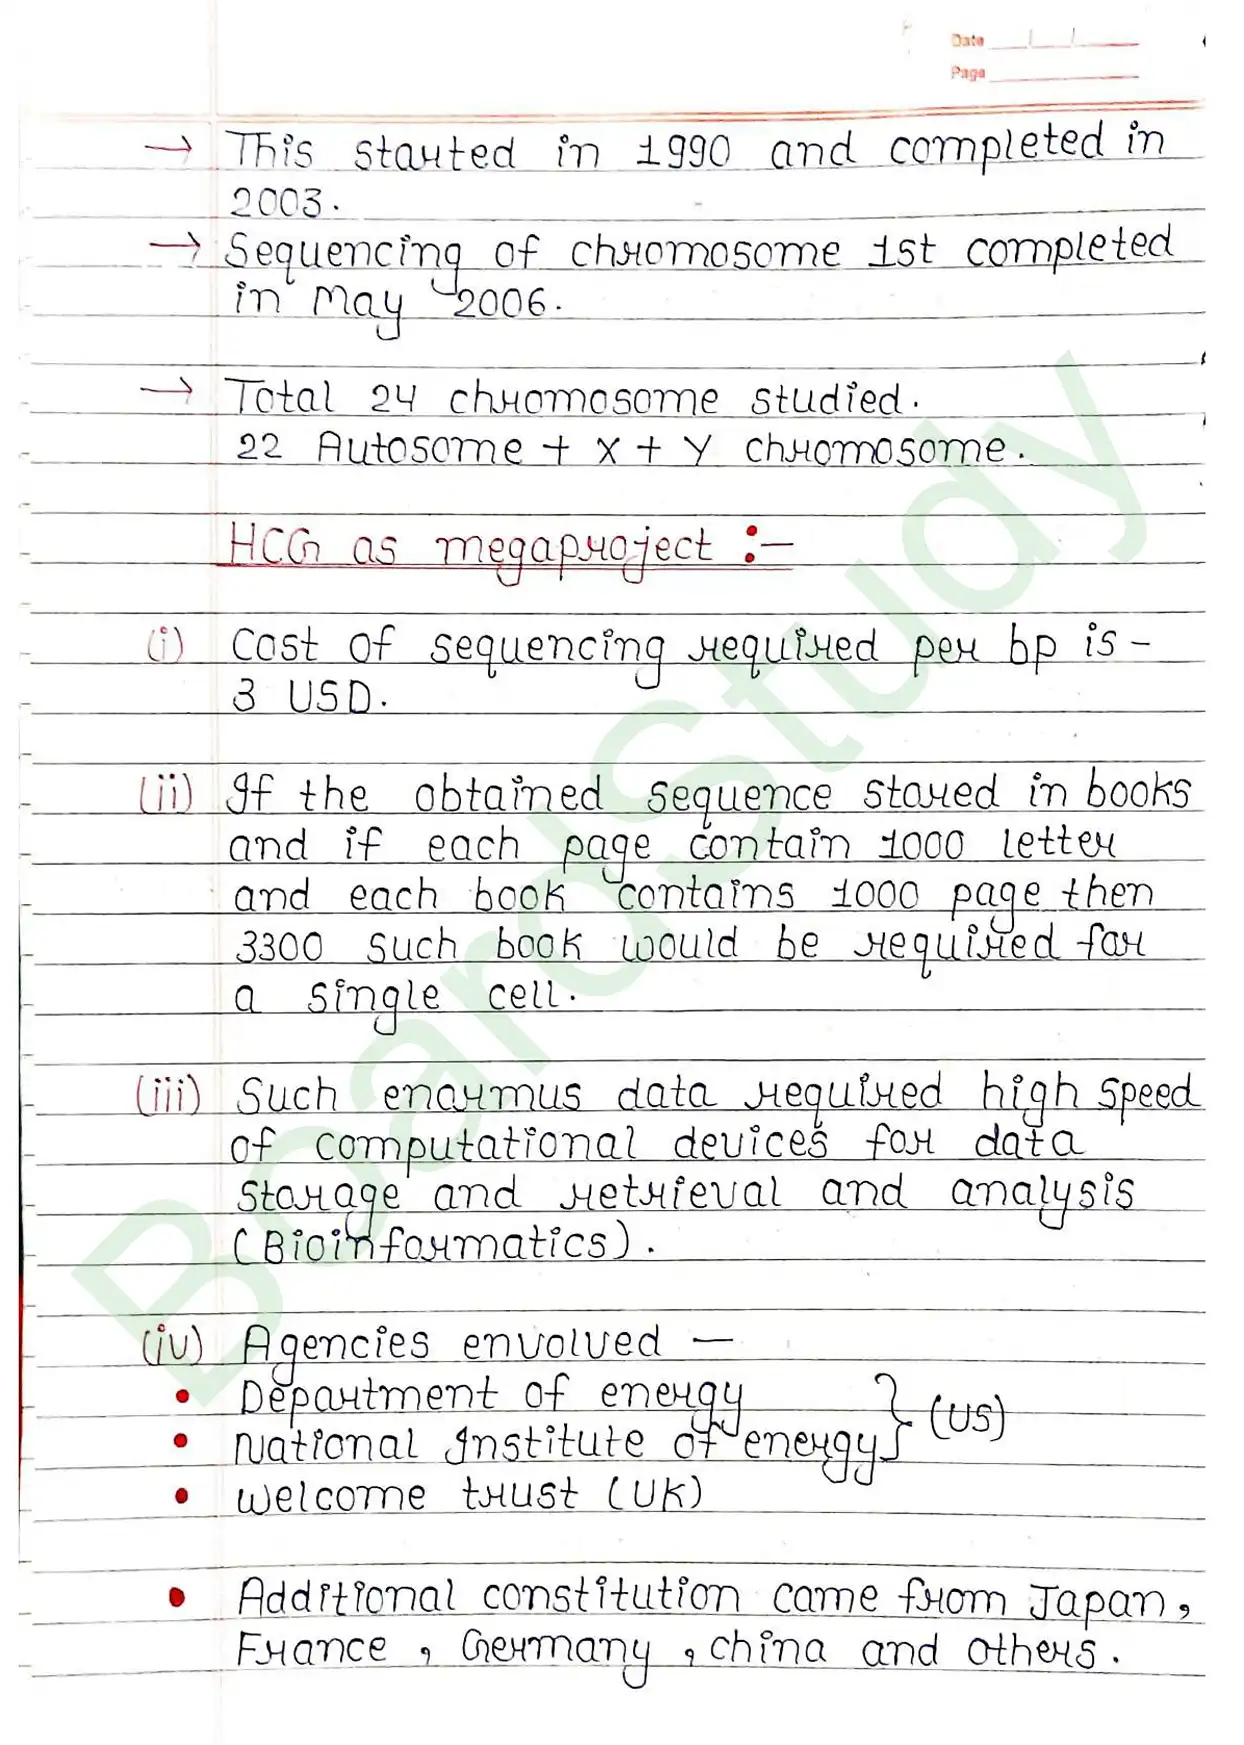 Date
Page
→ This started in 1990 and completed in
2003.
→ Sequencing of chromosome 1st completed
in May 2006.
→ Total 24 chromosome studied.
22 Autosome + X + Y chromosome.
HCG as megaproject :-
(i) Cost of sequencing required per bp is -
3 USD.
(ii) If the obtained sequence stored in books
and if each page contain 1000 letter
and each book contains 1000 page then
3300 such book would be required for
a single cell.
(iii) Such enormus data required high speed
of computational devices for data
storage and retrieval and analysis
(Bioinformatics).
(iv) Agencies envolved —
• Department of energy
• National Institute of energy } (US)
• Welcome trust (UK)
• Additional constitution came from Japan,
France, Germany, China and others.
BoardStudy